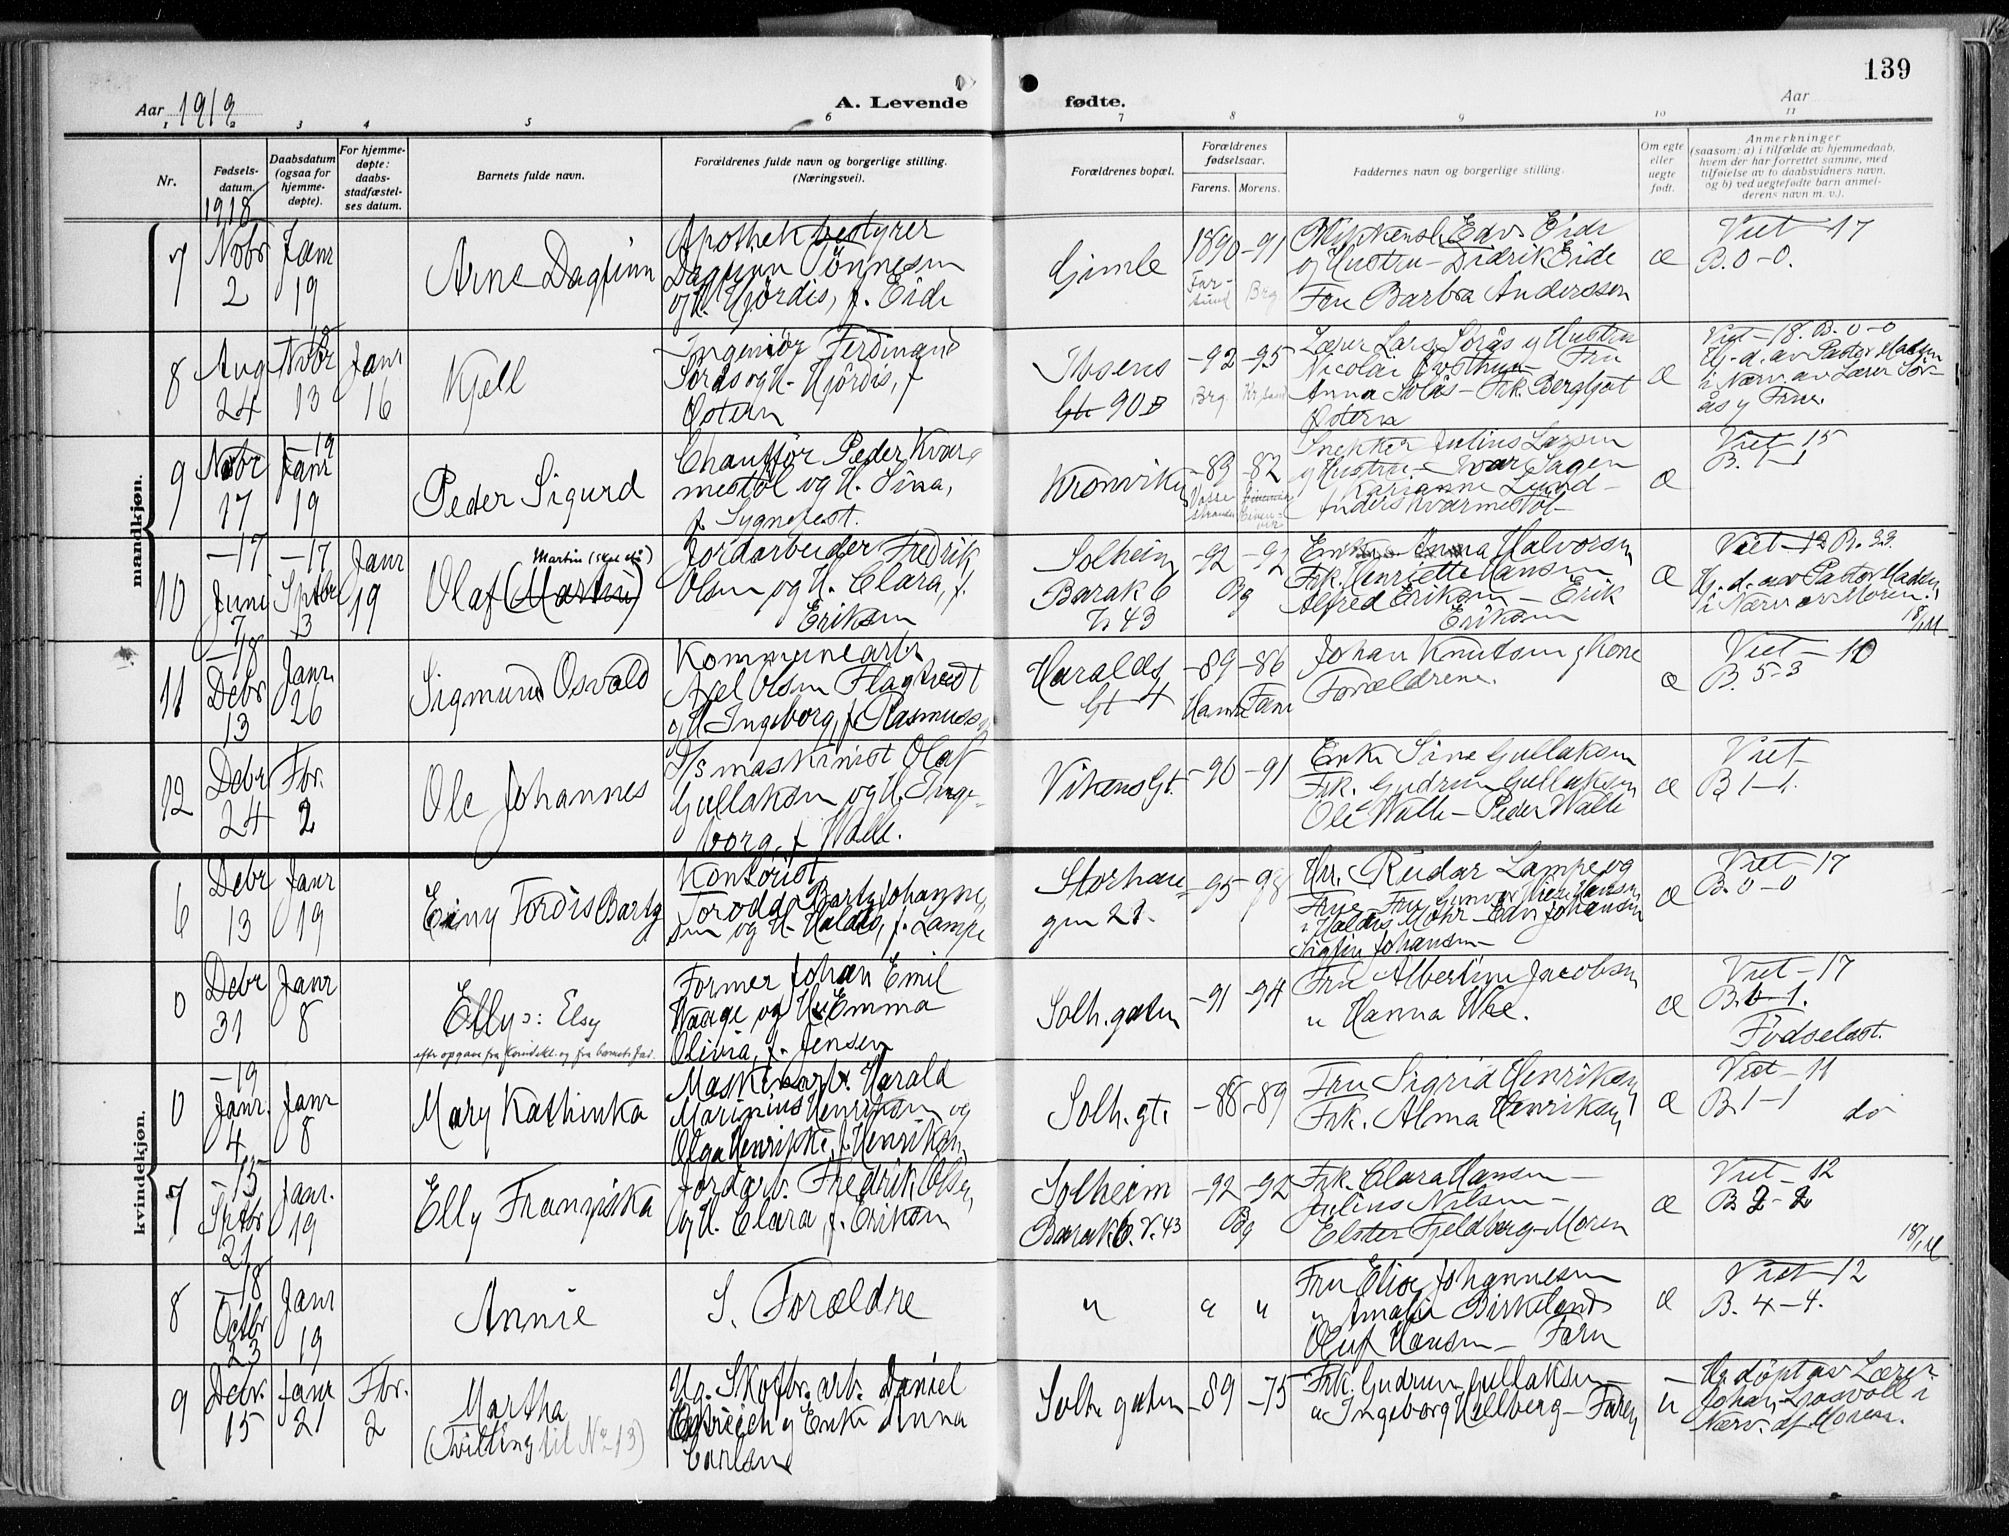 139
Aar 1919
A. Levende fødte.
Aar
1 2 3 4 5 6 7 8 9 10 11
Nr.
Fødsels-
datum.
1918
Daabsdatum
(ogsaa for
hjemme-
døpte).
For hjemme-
døpte:
daabs-
stadfæstel-
ses datum.
Barnets fulde navn.
Forældrenes fulde navn og borgerlige stilling.
(Næringsvei).
Forældrenes bopæl.
Forældrenes
fødselsaar.
Farens. Morens.
Faddernes navn og borgerlige stilling.
Om egte
eller
uegte
født.
Anmerkninger
(saasom: a) i tilfælde av hjemmedaab,
hvem der har forrettet samme, med
tilføielse av to daabsvidners navn,
og b) ved uegtefødte barn anmel-
derens navn m. v.).
mandkjøn.
7
Nobr
2
Janr
19
Arne Dagfinn
Apothekbestyrer
Dagfinn Tönnesen
og H. Hjördis, f. Eide
Gimle
1890 -91
Far-
sund
Brg.
Edv. Eide
og Hustru - Didrik Eide
Fru Barbra Anderssen
æ
Viet - 17
B. 0-0.
8
Aug
24
18
Nobr
13
Janr
16
Kjell
Ingeniør Ferdinand
Sørås og H. Hjördis, f
Østern
Ibsens
Gt. 90 B
-92 -95
Brg. Kr.sand
Lærer Lars Sørås og Hustru
Nicolai Østhun - Fru
Anna Solås - Frk. Bergljot
Østern
æ
Viet - 18. B. 0-0
Hj. d. av Pastor Madsen
i Nærv. av Lærer Sør-
ås og Frue.
9
Nobr
17
-19
Janr
19
Peder Sigurd
Chauffør Peder Kvar-
mestøl og H. Sina,
f. Sygnefest.
Kronviken
-83 -82
Snekker Julius Larsen
og Hustru - Ivar Sagen
Karianne Lund -
Anders Kvarmestøl -
æ
Viet - 15
B. 1-1
10
-17
Juni
7
-17
Sptbr
13
Janr
19
Martin (skal stå)
Olaf (Martin)
Jordarbeider Fredrik
Olsen og H. Clara, f.
Eriksen
Solheim
Barak 6
V. 43
-92 -92
Bg
Enke Anna Halvorsen
Frk. Henriette Hansen
Alfred Eriksen - Erik
Eriksen
æ
Viet - 12 B. 33.
Hj. d. av Pastor Madsen
i Nærv. av Moren.
11
-18
Debr
13
Janr.
26
Sigmund Osvald
Kommunearb.
Axel Olsen Flagtvedt
og H. Ingeborg, f. Rasmussen
Haralds
Gt 4
-89 -86
Hamre Fane
Johan Knutsen og Kone
Forældrene.
æ
Viet - 10
B. 5-3
12
Debr
24
Fbr.
2
Ole Johannes
D/S maskinist Olaf
Gullaksen og H. Inge-
borg, f Walle.
Vikens Gt.
-90 -91
Enke Sine Gullaksen
Frk. Gudrun Gullaksen
Ole Walle - Peder Walle
æ
Viet -
B. 1-1.
kvindekjøn.
6
Debr
13
Janr
19
Einy Tordis Bartz
Kontorist
Toradd Bartz Johanne-
sen og H. Haldis, f. Lampe
Storhau-
gen 21.
-95 -98
Hr. Reidar Lampe og
Frue - Fru Gunvor Wiese Hansen
Haldis Mohr - Edv. Johansen
Sigfin Johansen -
æ
Viet - 17
B. 0-0
0
Debr
31
Janr
8
Elly ɔ: Elsy
efter opgave fra Kvindekl. og fra barnets far.
Former Johan Emil
Waage og H. Emma
Olivia, f. Jensen
Solh. gaten
-91 -94
Fru Albertine Jacobsen
" Hanna Wee.
æ
Viet - 17
B. 1-1.
Fødselsst.
0
-19
Janr.
4
Janr
8
Mary Kathinka
Maskinarb. Harald
Marinius Henriksen og
Olga Henrikke, f. Henriksen
Solh. gt.
-88 -89
Fru Sigrid Henriksen
Frk. Alma Henriksen
æ
Viet - 11
B. 1-1
do
7
Sptbr
21
Janr.
19
Elly Franziska
Jordarb. Fredrik Olsen
og H. Clara, f. Eriksen
Solheim
Barak 6. V. 43
-92 -92
Bg
Frk. Clara Hansen -
Julius Nilsen -
Elster Fjeldberg - Moren
æ
Viet - 12
B. 2-2
8
-18
Octbr
23
Janr
19
Annie
S. Forældre
" " "
Fru Elise Johannesen
" Amalie Birkeland
Oluf Hansen - Faren
æ
Viet - 12
B. 4-4.
9
Debr.
15
Janr
21
Fbr.
2
Martha
(Tvilling til No 13)
Ug. Skofbr. arb. Daniel
og Enke Anna
Carlsen
Solh. gaten
-89 -75
Frk. Gudrun Gullaksen -
" Ingeborg Hellberg - Faren
u
Hj. døpt av Lærer
Johan i
Nærv. af Moren.